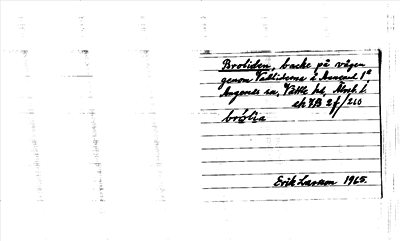 Broliden, backe på vägen
genom Valliderna i Annerud 1ª
Angered sn, Vättle hd, Älvsb. l.
ek 7B 2f/210
brólia
Erik Larsson 1965.